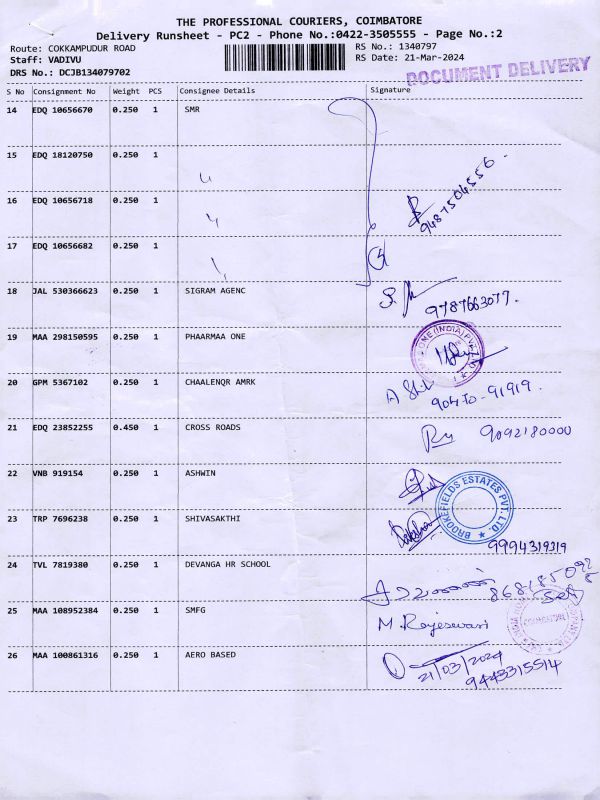 THE PROFESSIONAL COURIERS, COIMBATORE
Delivery Runsheet - PC2 - Phone No.:0422-3505555 - Page No.:2
Route: COKKAMPUDUR ROAD RS No.: 1340797
Staff: VADIVU RS Date: 21-Mar-2024
DRS No.: DCJB134079702 DOCUMENT DELIVERY
S No Consignment No Weight PCS Consignee Details Signature
14 EDQ 10656670 0.250 1 SMR
15 EDQ 18120750 0.250 1 〃
16 EDQ 10656718 0.250 1 〃 9487504556
17 EDQ 10656682 0.250 1 〃
18 JAL 530366623 0.250 1 SIGRAM AGENC 9787663077.
19 MAA 298150595 0.250 1 PHAARMAA ONE
20 GPM 5367102 0.250 1 CHAALENQR AMRK
21 EDQ 23852255 0.450 1 CROSS ROADS 9092180000
22 VNB 919154 0.250 1 ASHWIN
BROOKEFIELDS ESTATES PVT. LTD.
23 TRP 7696238 0.250 1 SHIVASAKTHI 9994319319
24 TVL 7819380 0.250 1 DEVANGA HR SCHOOL
25 MAA 108952384 0.250 1 SMFG M. Rajeswari
26 MAA 100861316 0.250 1 AERO BASED
21/03/2024
9443315514